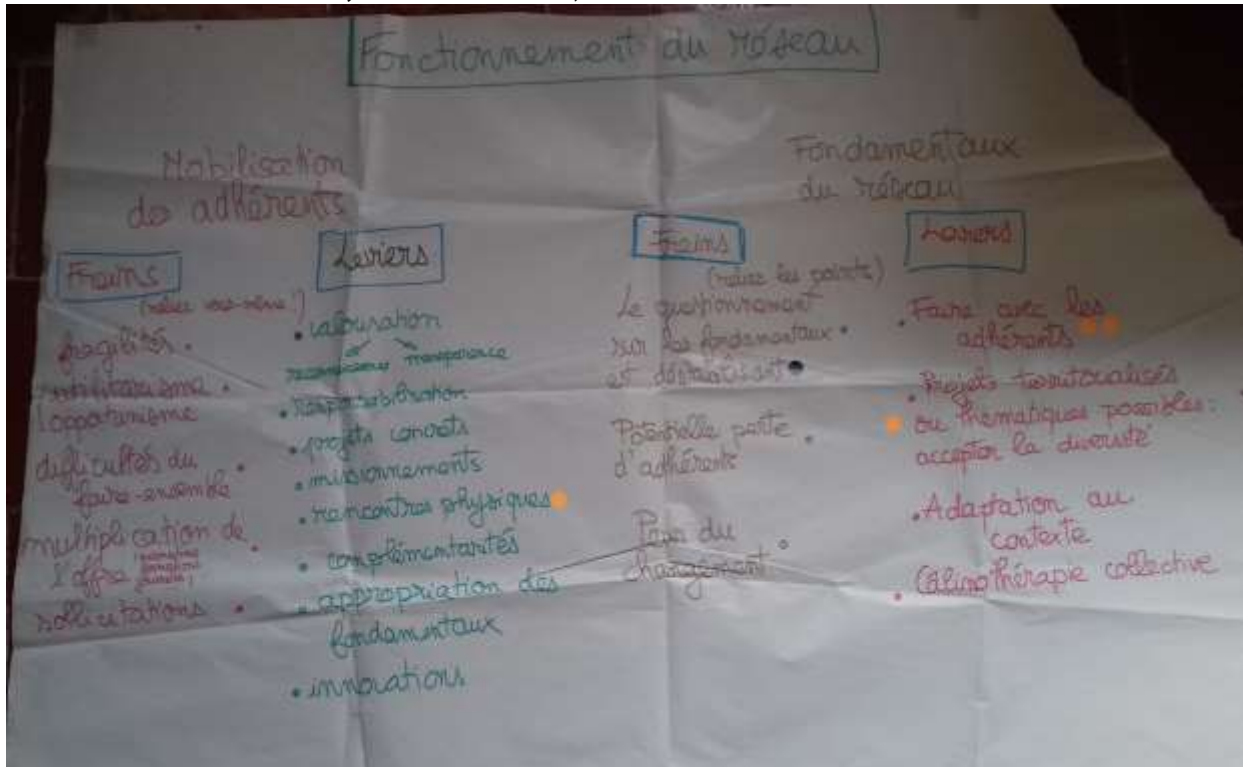 Fonctionnement du réseau
Mobilisation
des adhérents
Freins
(reliez vous-même !)
fragilités
l'opportunisme
difficultés du
"faire-ensemble"
multiplication de
l'offre
sollicitations
Leviers
• valouration
transparence
• responsabilisation
• projets concrets
• missionnements
• rencontres physiques
• complémentarités
• appropriation des
fondamentaux
• innovations
Fondamentaux
du réseau
Freins
(reliez les points)
Le questionnement
sur les fondamentaux
est déstabilisant
Potentielle perte
d'adhérents
Peur du
changement
Leviers
• Faire avec les
adhérents
• Projets territorialisés
ou thématiques possibles :
accepter la diversité
• Adaptation au
contexte
• Câlinothérapie collective